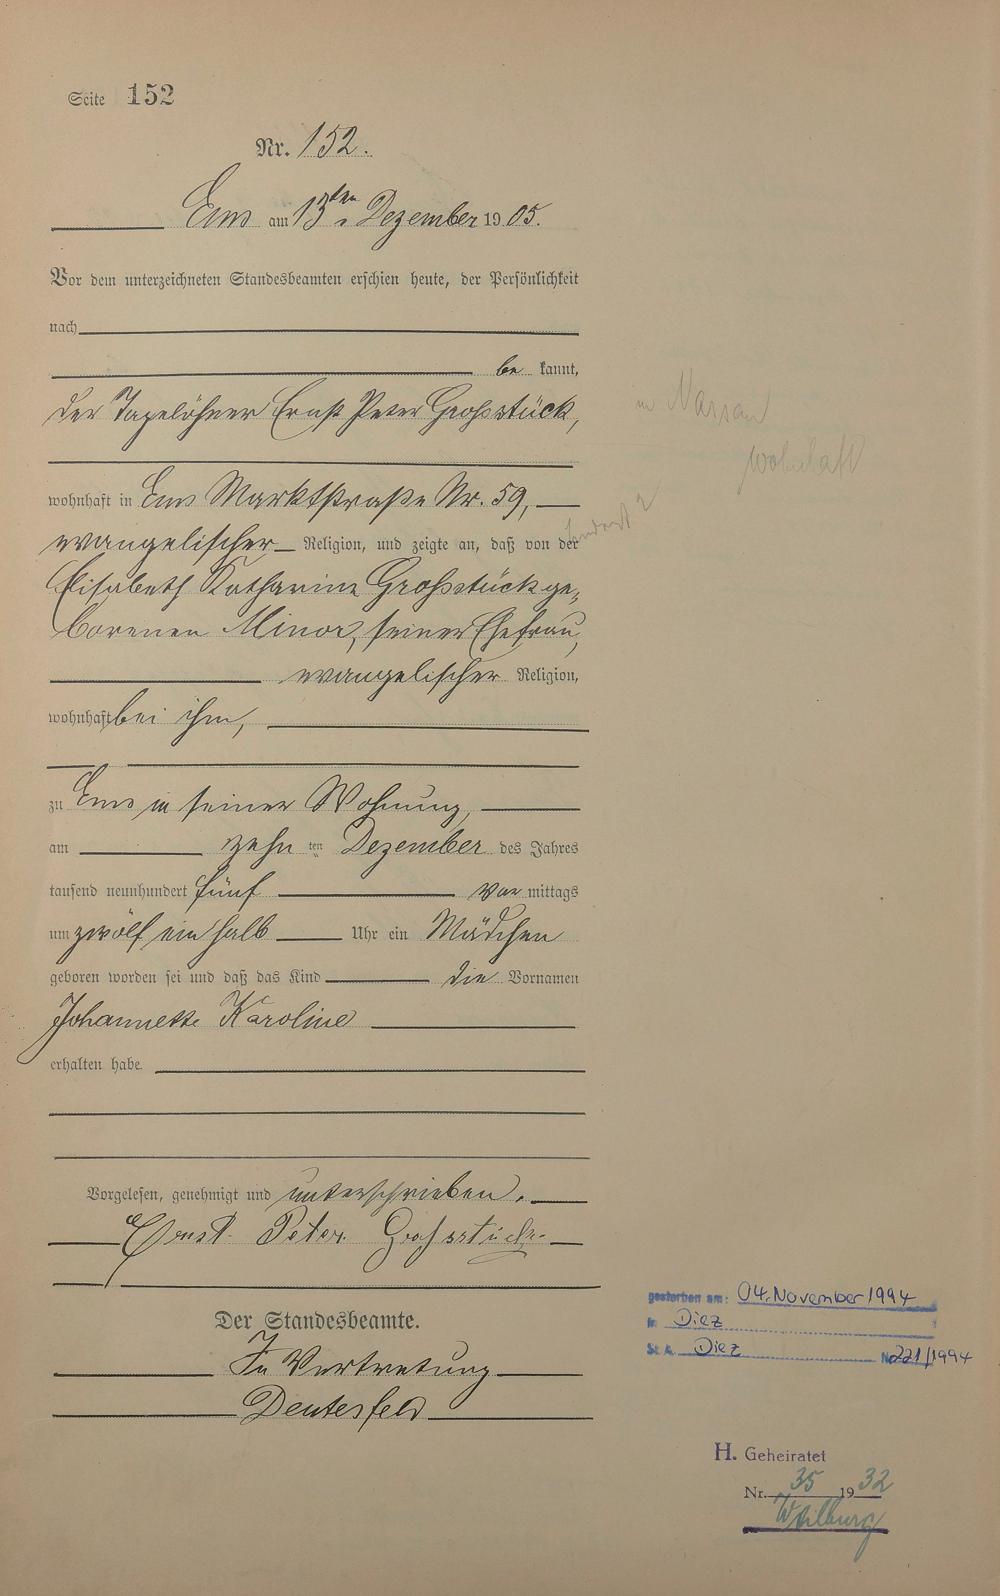 Seite 152
Nr. 152.
Ems am 13ten Dezember 1905.
Vor dem unterzeichneten Standesbeamten erschien heute, der Persönlichkeit
nach
be kannt,
der Tagelöhner Ernst Peter Großstück,
in Nassau
wohnhaft
wohnhaft in Ems Marktstraße Nr. 59,
evangelischer Religion, und zeigte an, daß von der
Elisabeth Katharina Großstück ge-
borenen Minor, seiner Ehefrau,
evangelischer Religion,
wohnhaft bei ihm,
zu Ems in seiner Wohnung,
am zehn ten Dezember des Jahres
tausend neunhundert fünf vor mittags
um zwölf ein halb Uhr ein Mädchen
geboren worden sei und daß das Kind die Vornamen
Johannette Karoline
erhalten habe.
Vorgelesen, genehmigt und unterschrieben.
Ernst Peter Grossstück
Der Standesbeamte.
In Vertretung
Deutesfeld
gestorben am: 04. November 1994
in Diez
St. A. Diez Nr. 221/1994
H. Geheiratet
Nr. 35 1932
Weilburg